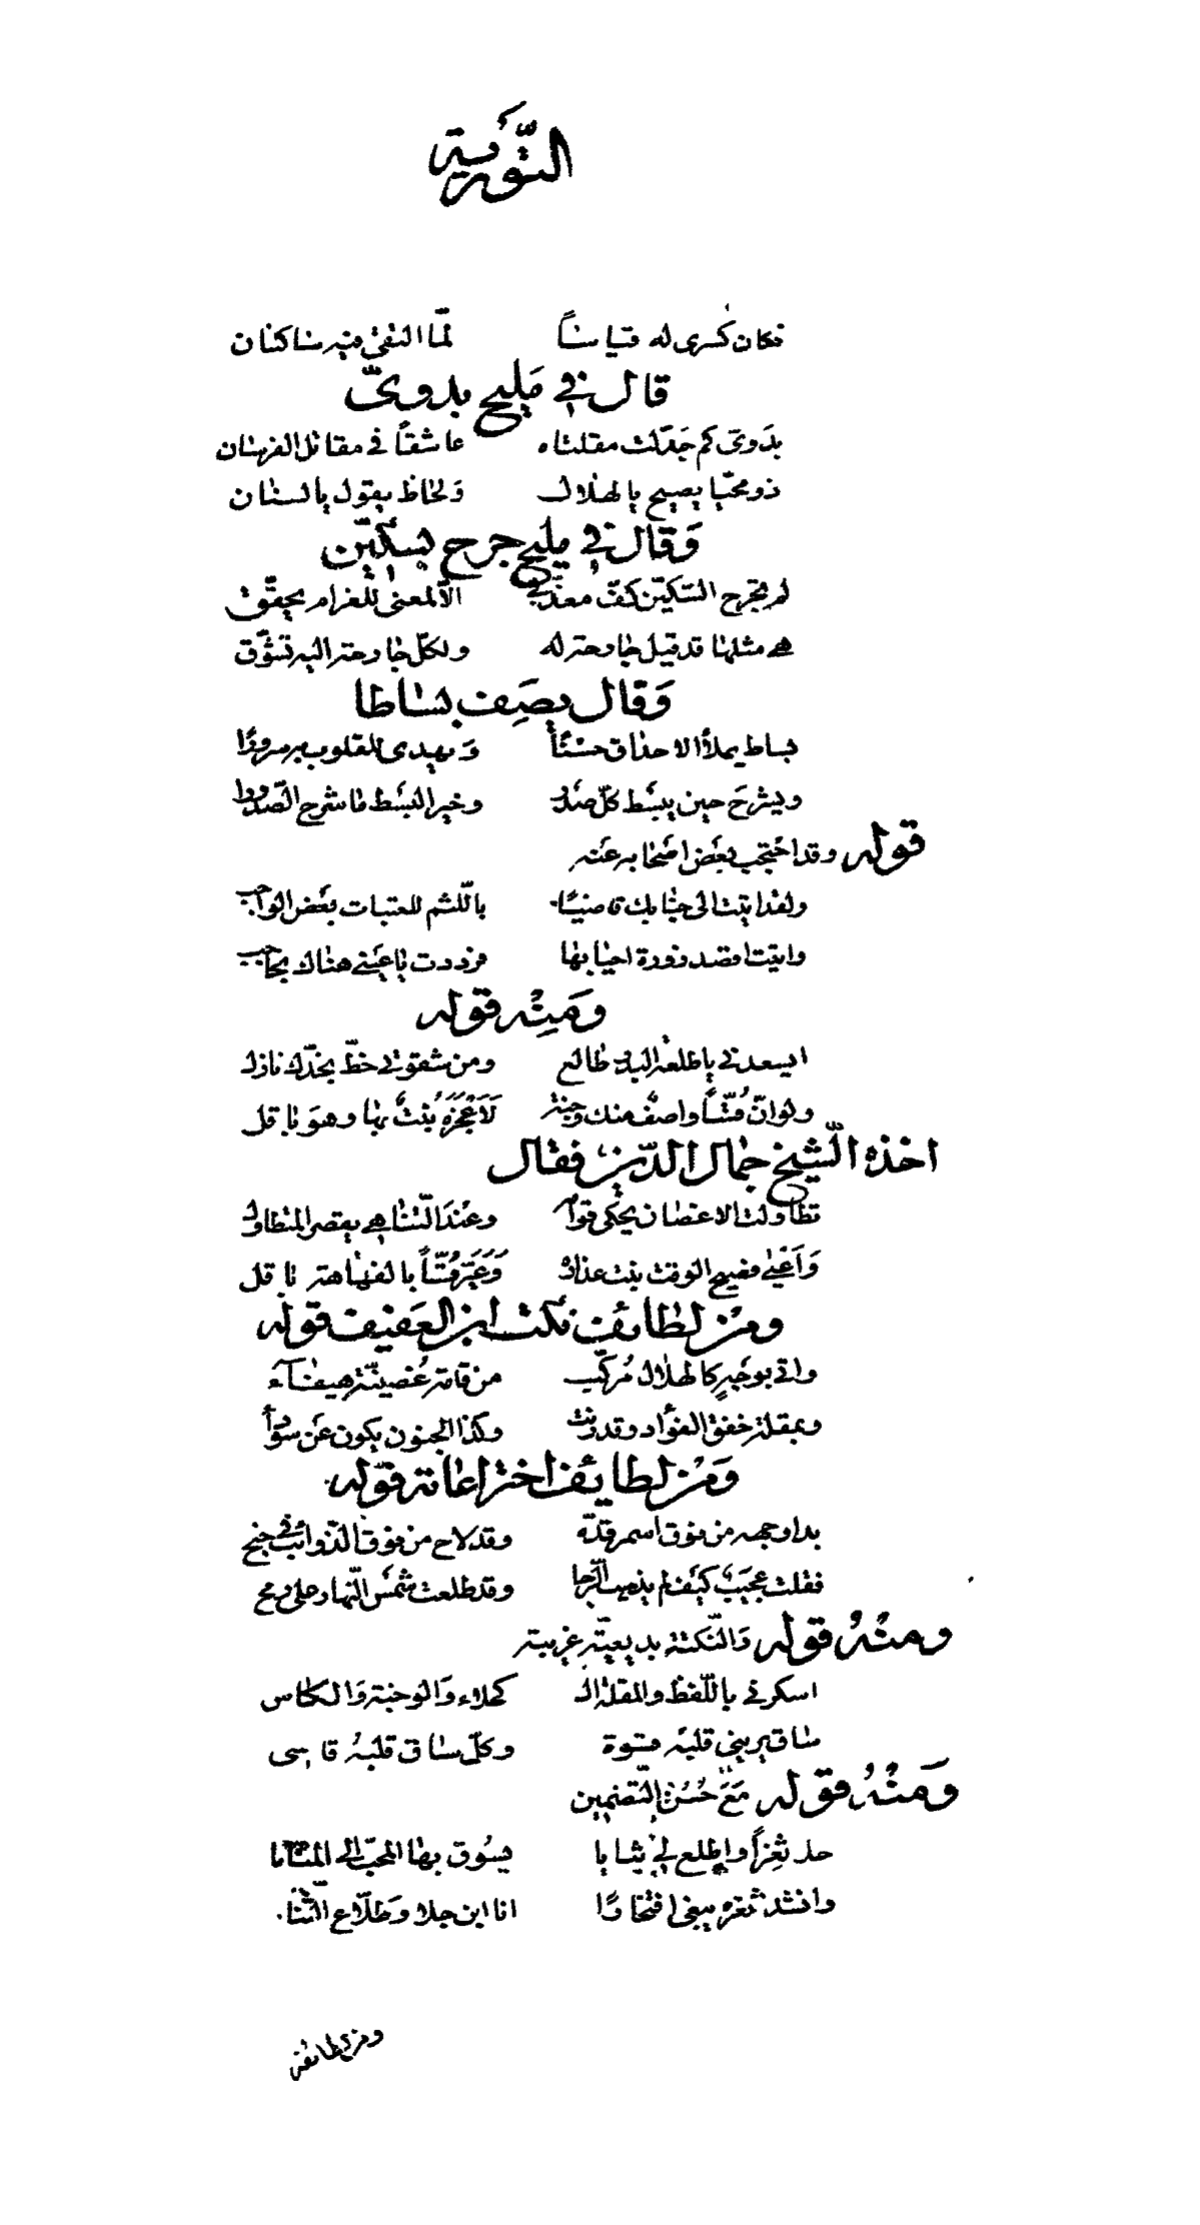 التّورَية
فكان كسرى له قياساً لمّا التقى فيه ساكنان
قال في مَليح بدويّ
بدَوىّ كم جَدّلت مقلتاه عاشقاً في مقاتل الفرسان
ذو محيّا يصيح يا لهلال وَلحاظ يقول يا لسنان
وَقال في مليح جرح بسكّين
لم تجرح السّكين كفّ معذّبي الّا لمعنى للغرام يحقّق
هي مثلها قد قيل جارحة له ولكلّ جارحة اليه تشوّق
وَقال يصَِف بساطا
بساط يملأ الاحداق حسْنًا وَيهدى للقلوب به سرورًا
ويشرحَ حين يبسَط كلّ صدر وخير البسَط ما شرح الصّدورا
قوله وقد احْتجب بعَض اصْحابه عنَه
ولقد اتيت الى جنابك قاضيًا باللّثم للعتبات بعَض الواجب
واتيت اقصد زورة احيا بها فرددت يا عيَني هناك بحاجب
وَمَنِْه قوله
ايسعدني يا طلعة البدر طالع ومن شقوتي خطّ بخدّك نازل
ولو انّ قُسّاً واصفٌ منك وجنة لَاَعْجَزَهُ نبْتٌ بها وهوَ باقل
اخذه الشّيخ جمال الدّين فقال
تطاولت الاغصان يحكى قوامه وعنْدَ التّناهي يقصر المتطاول
وَاَعْيىٰ فصيح الوقت نبت عذاره وَعَيّرَ قُسّاً بالفهاهة باقل
ومن لطائف نكت ابن العَفيف قوله
وافى بوجَهٍ كالهلال مُركّب من قامة غُصينّة هيفآء
وبمقلة خفق الفؤاد وقد رنت وكذا الجنون يكون عَن سودآ
وَمْن لطايف اختراعاته قوله
بدا وجهه من فوق اسمر قدّه وقد لاح من فوق الذّوائب في جنح
فقلت عجَيبٌ كيَف لم يذهب الدّجا وقد طلعت شمْسَ النّهار على رمح
ومنْهُ قوله وَالنّكتة بديعيّة غريبة
اسكرني باللّفظ والمقلة ال كحلاء وَالوجنة وَالكاس
ساق يريني قلبُه قسوة وكلّ ساق قلبُه قاسي
وَمنْهُ قوله مَعَ حُسْن التّضمين
جلا ثغِراً واطلع لي ثنايا يسُوق بها المحبّ الى المنايا
وانشد ثغره يبغي افتخارًا انا ابن جلا وطَلّاع الثّنايا
ومن لطائفه